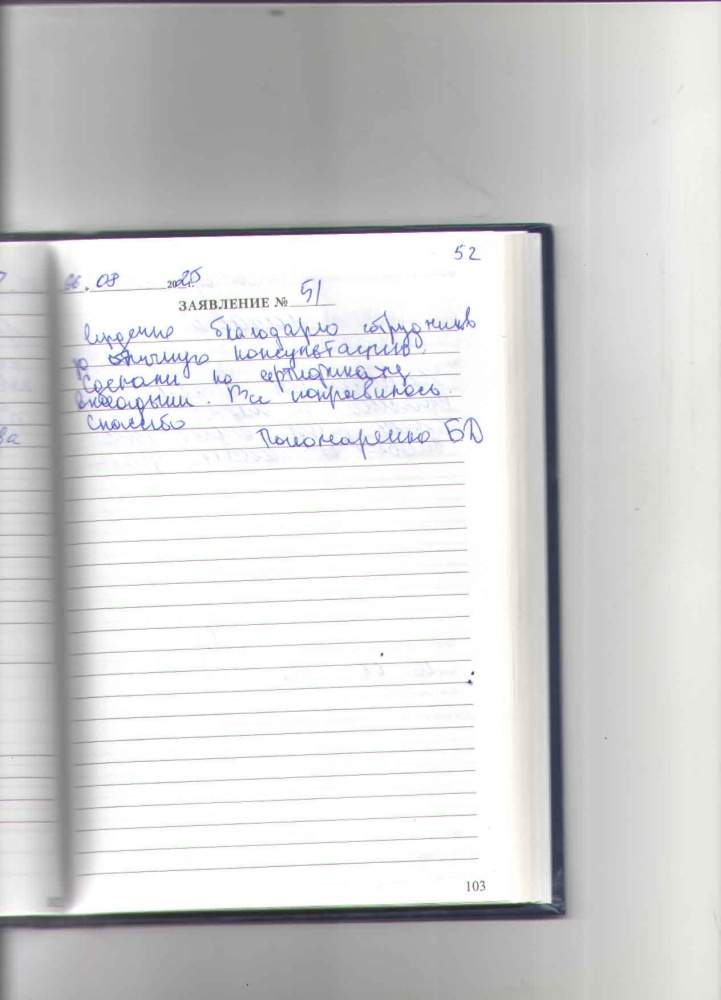 52
06.08 2025 г.
ЗАЯВЛЕНИЕ № 51
благодарю сотрудников
за отличную консультацию.
Сделали по сертификату
Все понравилось.
Спасибо
Пономаренко БД
ва
103